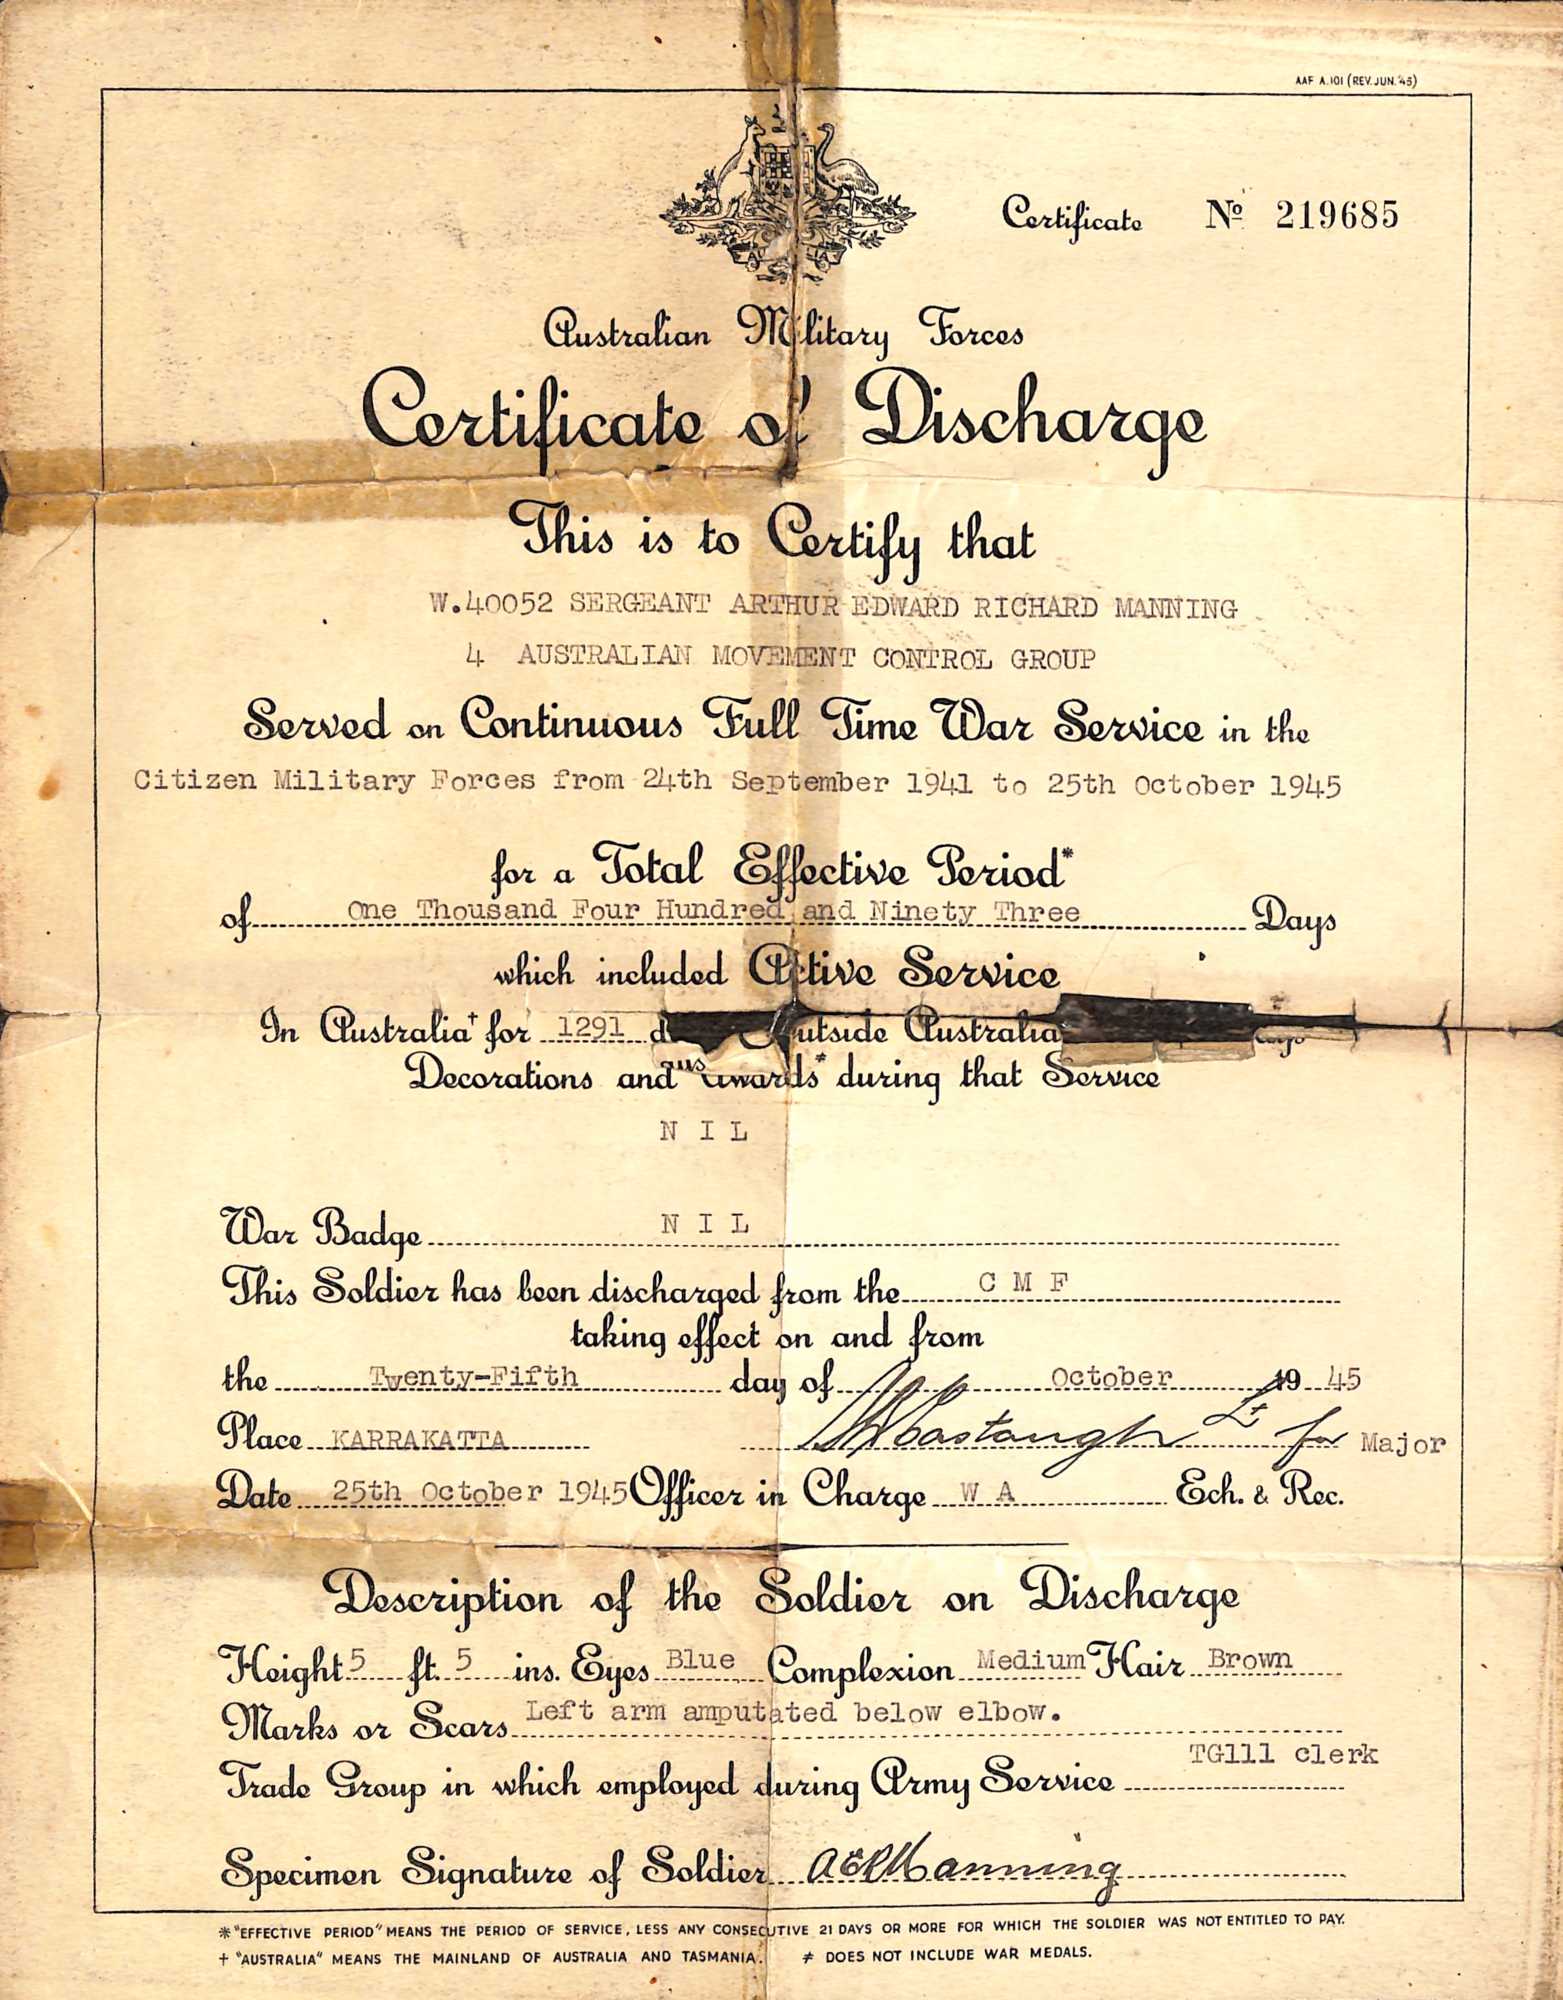 AAF A.101 (REV. JUN. '45)
Certificate No 219685
Australian Military Forces
Certificate of Discharge
This is to Certify that
W.40052 SERGEANT ARTHUR EDWARD RICHARD MANNING
4 AUSTRALIAN MOVEMENT CONTROL GROUP
Served on Continuous Full Time War Service in the
Citizen Military Forces from 24th September 1941 to 25th October 1945
for a Total Effective Period*
of One Thousand Four Hundred and Ninety Three Days
which included Active Service
In Australia† for 1291 outside Australia
Decorations and Awards during that Service
N I L
War Badge N I L
This Soldier has been discharged from the C M F
taking effect on and from
the Twenty-Fifth day of October 19 45
Place KARRAKATTA Lt for Major
Date 25th October 1945 Officer in Charge W A Ech. & Rec.
Description of the Soldier on Discharge
Height 5 ft. 5 ins. Eyes Blue Complexion Medium Hair Brown
Marks or Scars Left arm amputated below elbow.
Trade Group in which employed during Army Service TG111 clerk
Specimen Signature of Soldier A E R Manning
* "EFFECTIVE PERIOD" MEANS THE PERIOD OF SERVICE, LESS ANY CONSECUTIVE 21 DAYS OR MORE FOR WHICH THE SOLDIER WAS NOT ENTITLED TO PAY.
† "AUSTRALIA" MEANS THE MAINLAND OF AUSTRALIA AND TASMANIA. ≠ DOES NOT INCLUDE WAR MEDALS.